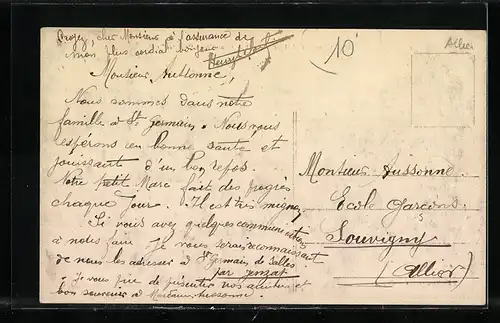 Croyez, cher Monsieur à l'assurance de
mon plus cordial bonjour.
10
Allier
Monsieur Aussonne,
Nous sommes dans notre
famille à St Germain. Nous vous
espérons en bonne santé et
jouissant d'un bon repos.
Notre petit Marc fait des progrès
chaque jour. Il est très mignon
Si vous avez quelques communications
à nous faire Je vous serai reconnaissant
de nous les adresser à St Germain de Salles
par Jenzat
Je vous prie de présenter nos amitiés et
bon souvenir à Madame Aussonne.
Monsieur Aussonne
Ecole Garçons
Souvigny
(Allier)